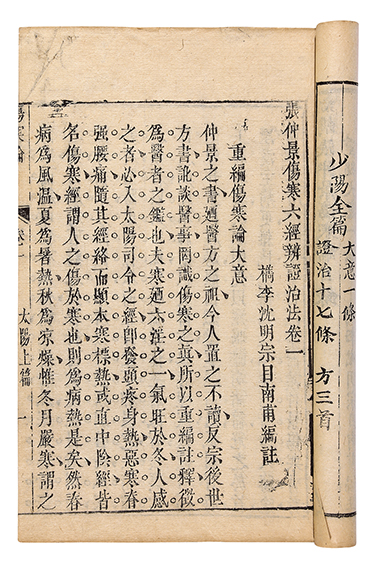 少陽全篇
大意一條
證治十七條 方三首
張仲景傷寒六經辨證治法卷一
檇李沈明宗目南甫編註
重編傷寒論大意
仲景之書迺醫方之祖今人置之不讀反宗後世
方書訛談醫事罔識傷寒之真所以重編註釋徵
為醫者之鑑也夫寒迺六淫之一氣旺於冬人感
之者必入太陽司令之經即發頭疼身熱惡寒脊
强腰痛隨其經絡而顯本寒標熱或直中陰經皆
名傷寒經謂人之傷於寒也則為病熱是矣然春
病為風温夏為暑熱秋為凉燥惟冬月嚴寒謂之
傷寒論
卷一
太陽上篇
一